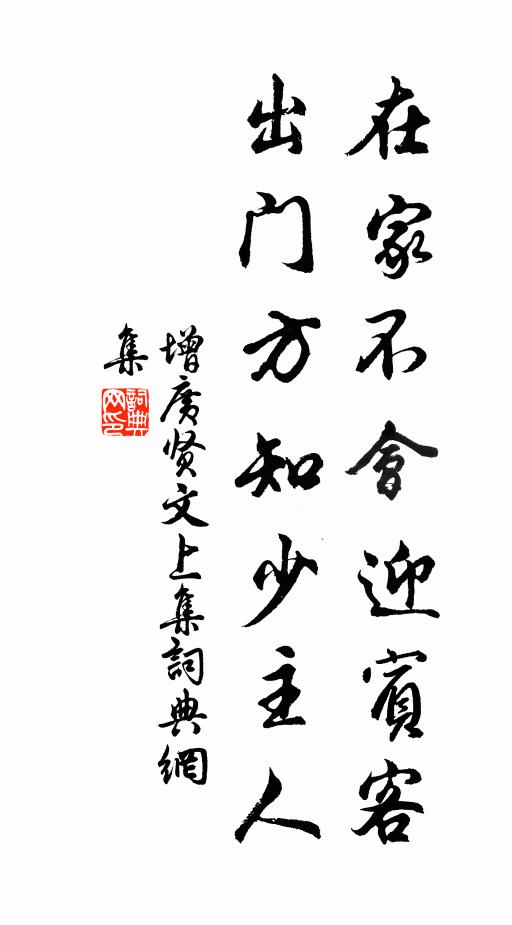 在家不會迎賓客
出门方知少主人
增廣贤文上集詞典網
集
詞典网印